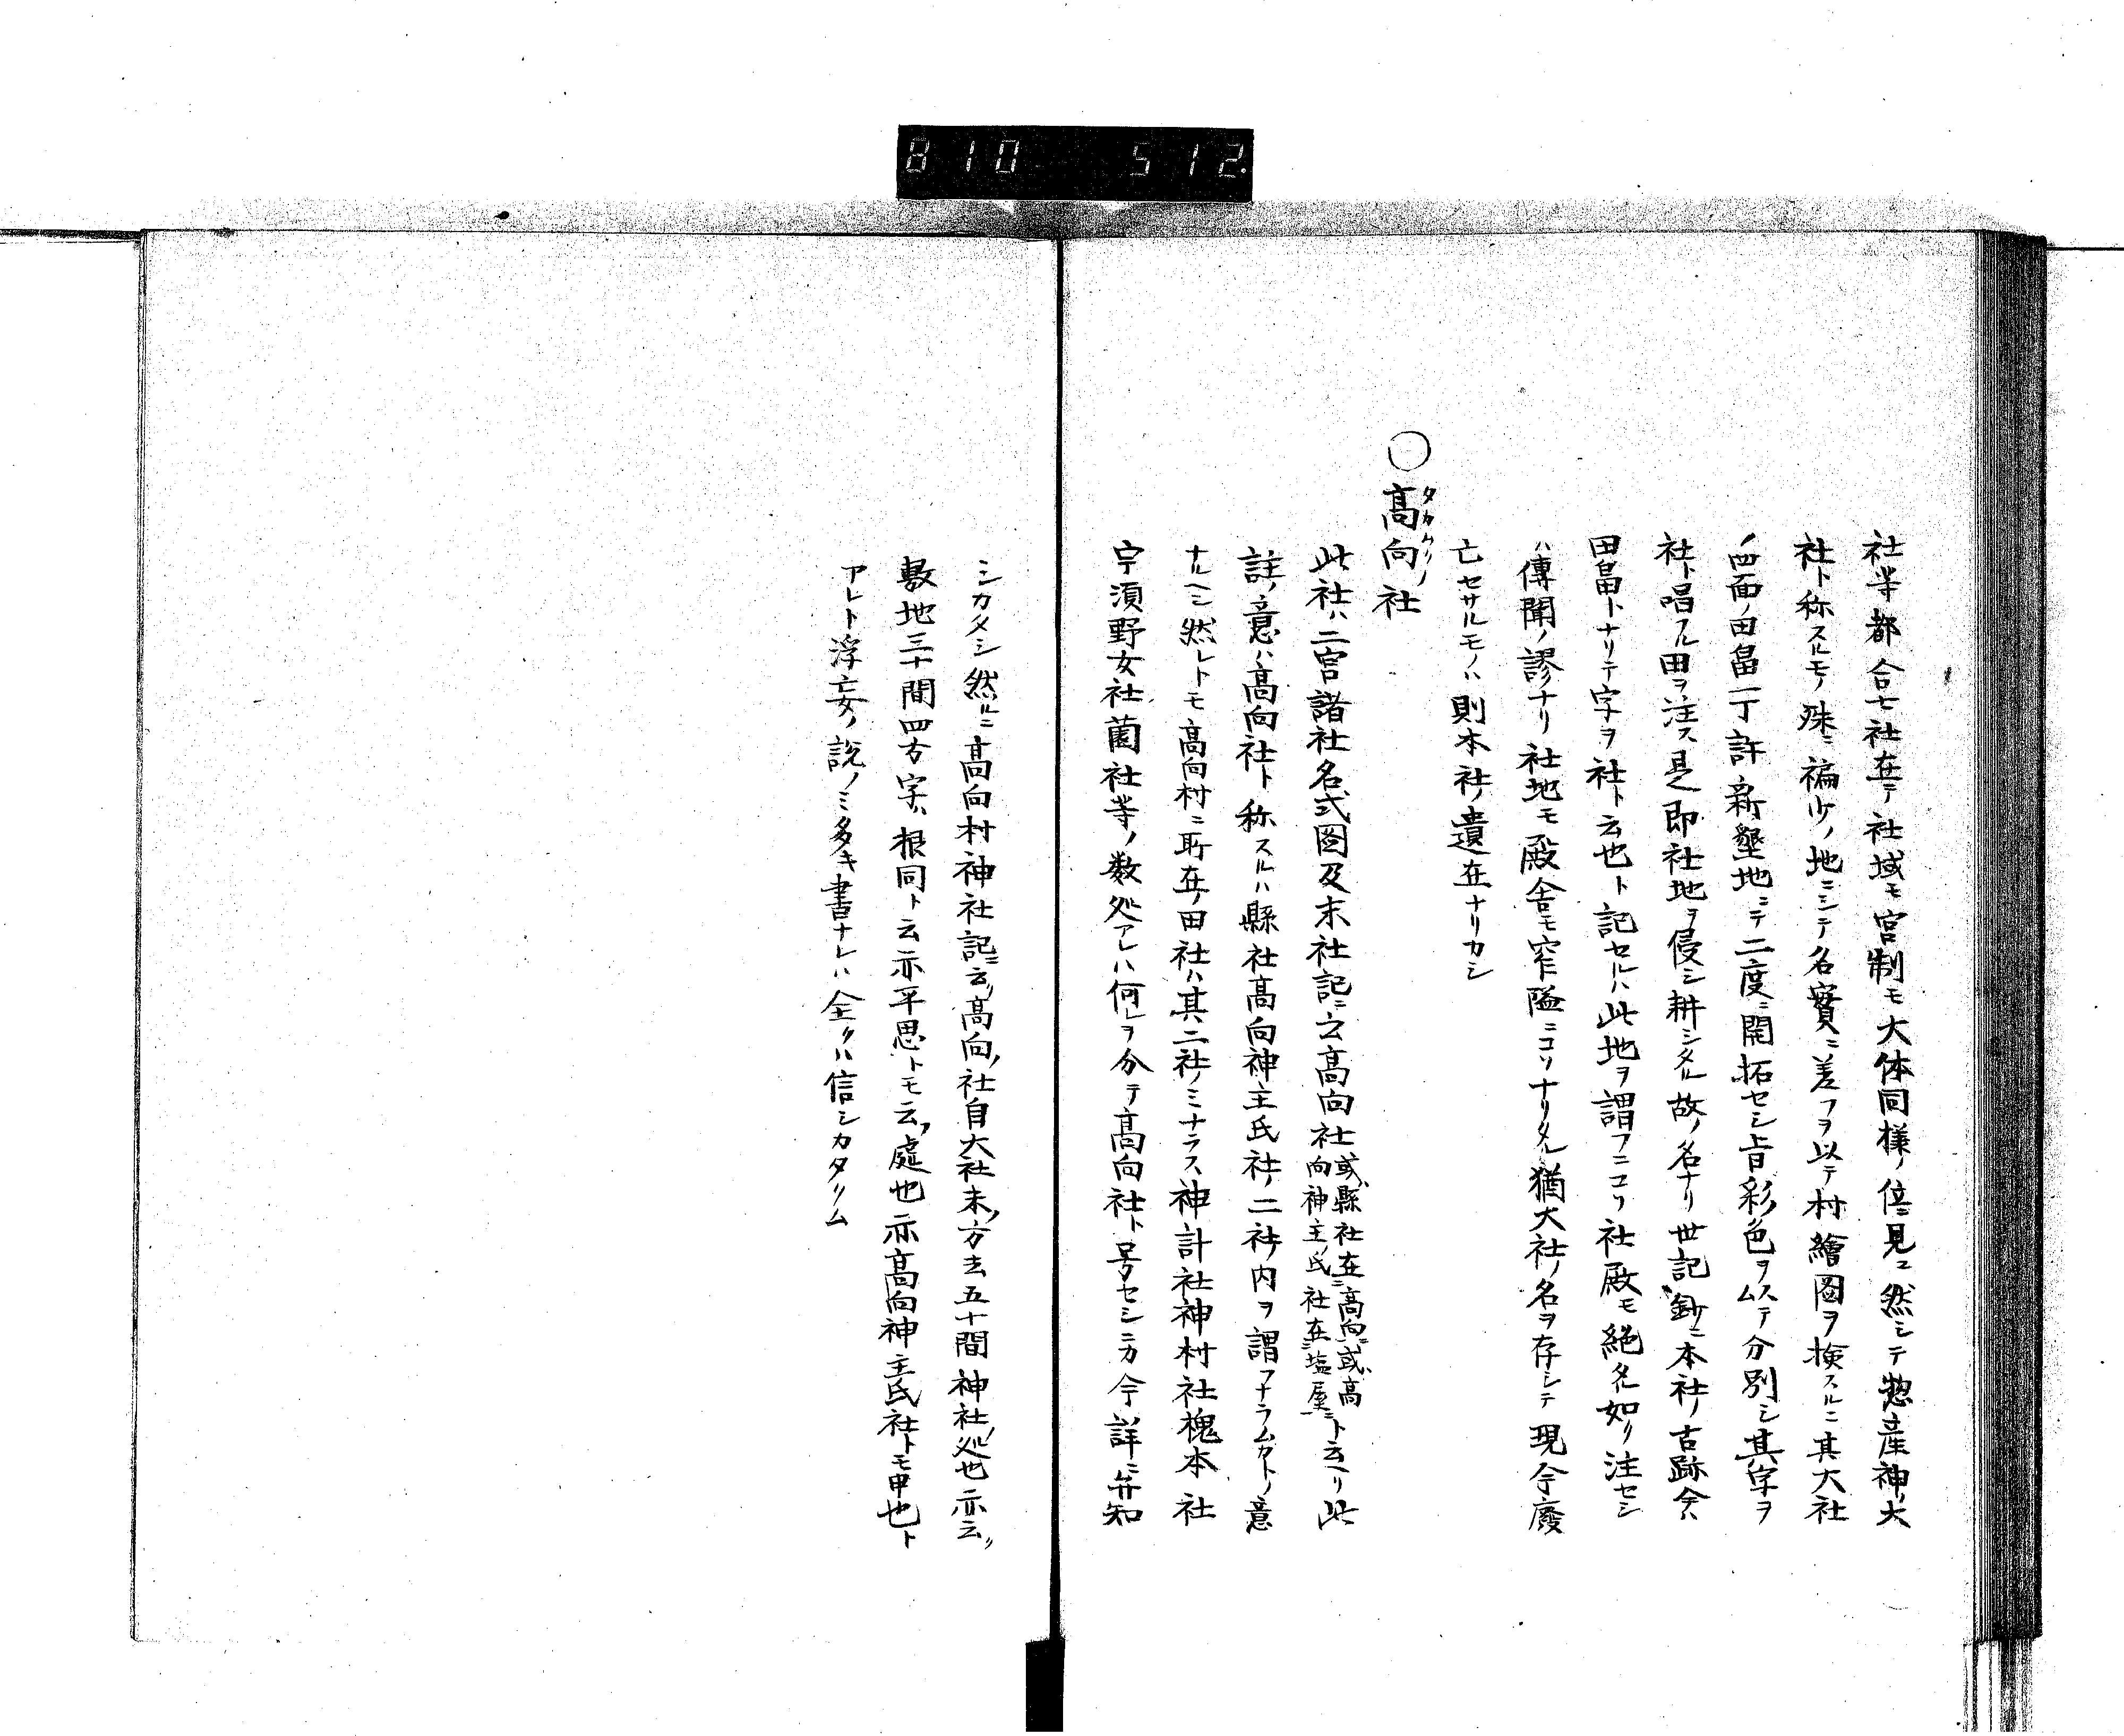 810 512.
社等都合七社在テ社域モ宮制モ大体同様ノ位ニ見ユ然シテ惣産神ノ大
社ト称スルモノ殊ニ褊少ノ地ニシテ名實ニ差フヲ以テ村繪圖ヲ検スルニ其大社
ノ四面ノ田畠一丁許新墾地ニテ二度ニ開拓セシ旨彩色ヲ以テ分別シ其字ヲ
社ト唱フル田ヲ注ス是即社地ヲ侵シ耕シタル故ノ名ナリ世記鈔ニ本社ノ古跡今ハ
田畠トナリテ字ヲ社ト云也ト記セルハ此地ヲ謂フニコソ社殿モ絶タル如ク注セシ
ハ傳聞ノ謬ナリ社地モ殿舎モ窄隘ニコソナリタレ猶大社ノ名ヲ存シテ現今廢
亡セサルモノハ則本社ノ遺在ナリカシ
〇高向社
タカムクノ
此社ハ二宮諸社名式圖及末社記ニ云高向社或ハ縣社在高向ニ或ハ高
向神主氏社在塩屋ニト云ヘリ此
註ノ意ハ高向社ト称スルハ縣社高向神主氏社ノ二社ノ内ヲ謂フナラムカトノ意
ナルヘシ然レトモ高向村ニ所在ノ田社ハ其二社ノミナラス神計社神村社槐本社
宇須野女社薗社等ノ数処アレハ何レヲ分テ高向社ト号セシニカ今詳ニ弁知
シカタシ然ルニ高向村神社記ニ云高向ノ社自大社未ノ方去五十間神社ノ処也亦云
敷地三十間四方字ハ根同ト云亦平思トモ云フ處也亦高向神主氏社トモ申也ト
アレト浮妄ノ説ノミ多キ書ナレハ全クハ信シカタケム